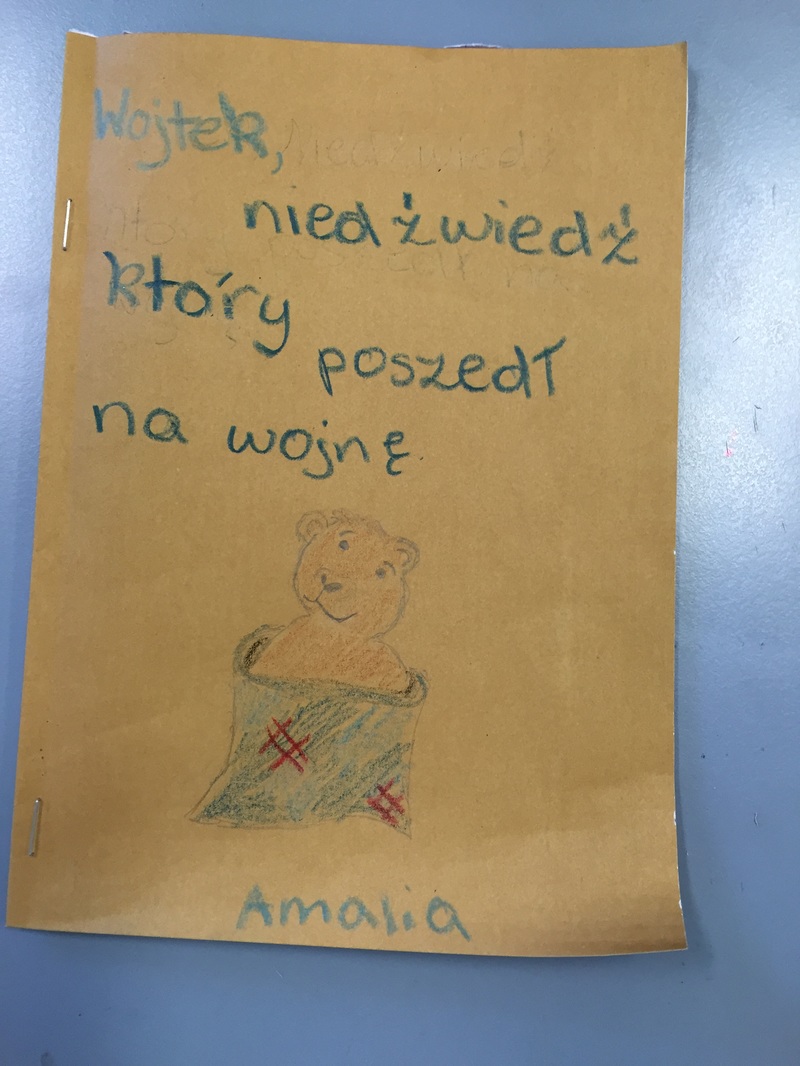 Wojtek,
niedźwiedź
który
poszedł
na wojnę
Amalia